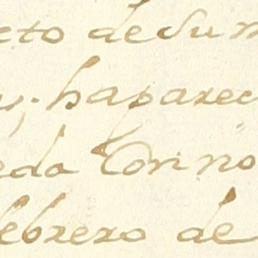 cto de sum
y, haparec
eda Con no
febrero de